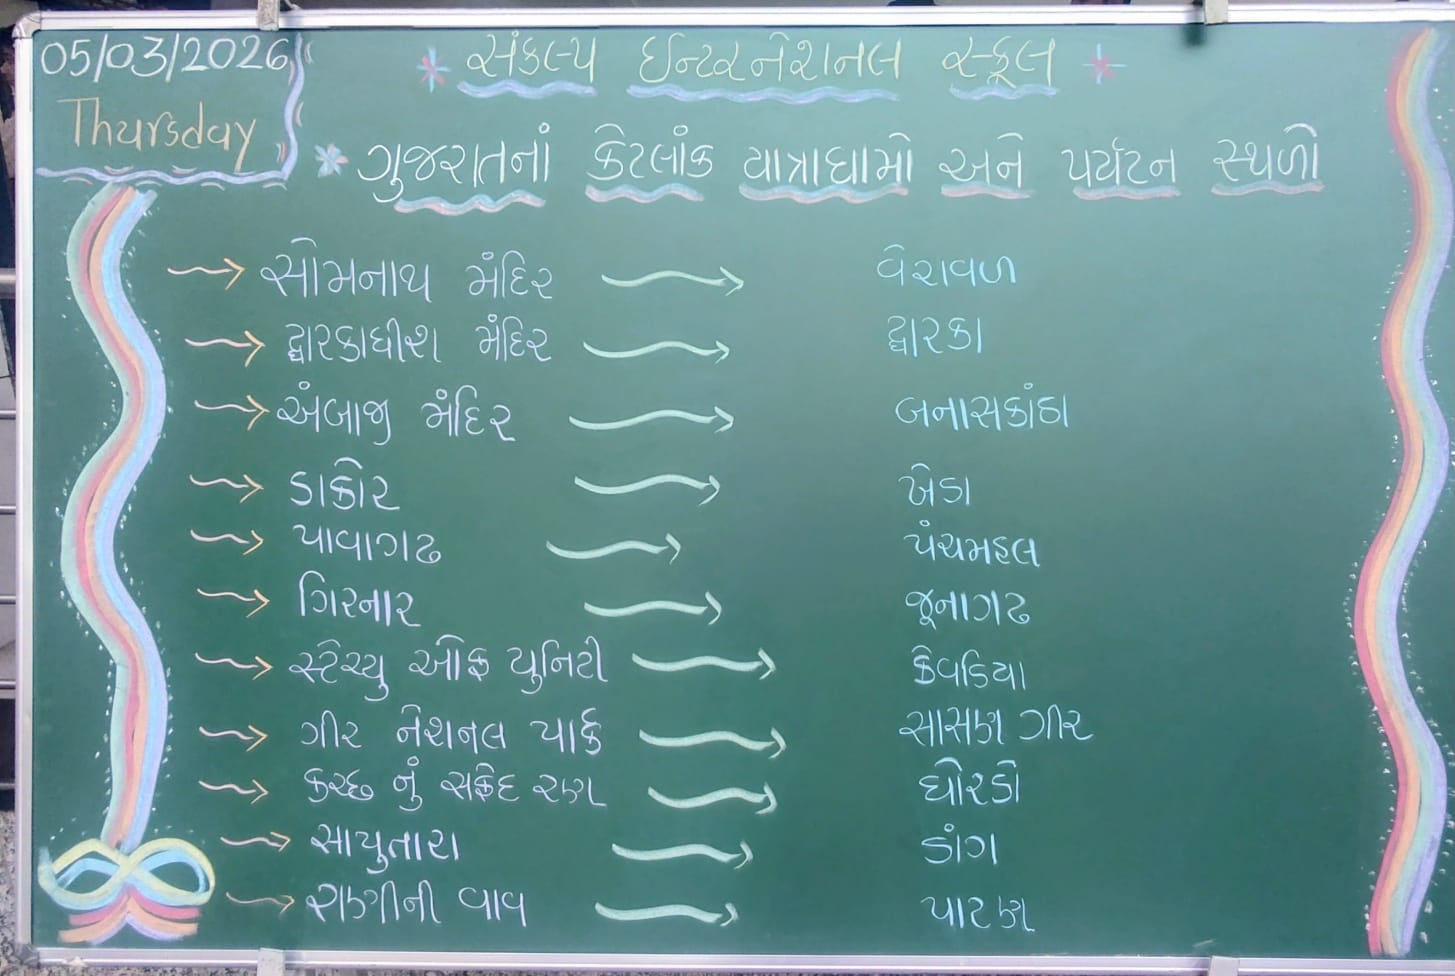 05/03/2026
Thursday
સંકલ્પ ઈન્ટરનેશનલ સ્કૂલ
ગુજરાતનાં કેટલાંક યાત્રાધામો અને પર્યટન સ્થળો
→ સોમનાથ મંદિર → વેરાવળ
→ દ્વારકાધીશ મંદિર → દ્વારકા
→ અંબાજી મંદિર → બનાસકાંઠા
→ ડાકોર → ખેડા
→ પાવાગઢ → પંચમહલ
→ ગિરનાર → જૂનાગઢ
→ સ્ટેચ્યુ ઓફ યુનિટી → કેવડિયા
→ ગીર નેશનલ પાર્ક → સાસણ ગીર
→ કચ્છ નું સફેદ રણ → ઘોરડો
→ સાપુતારા → ડાંગ
→ રાણીની વાવ → પાટણ